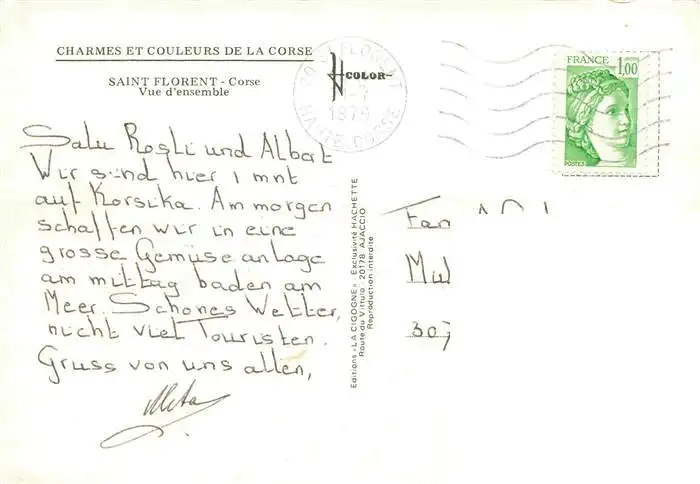 CHARMES ET COULEURS DE LA CORSE
SAINT FLORENT - Corse
Vue d'ensemble
COLOR
FLORENT
1979
HAUTE CORSE
FRANCE
1,00
POSTES
Salu Rosli und Albert
Wir sind hier 1 mnt
auf Korsika. Am morgen
schaffen wir in eine
grosse Gemüse anlage
am mittag baden am
Meer. Schönes Wetter,
nicht viel Touristen.
Gruss von uns allen,
Editions «LA CIGOGNE» - Exclusivité HACHETTE
Route du Vittulo 20178 AJACCIO
Reproduction interdite
Fam
Mul
307